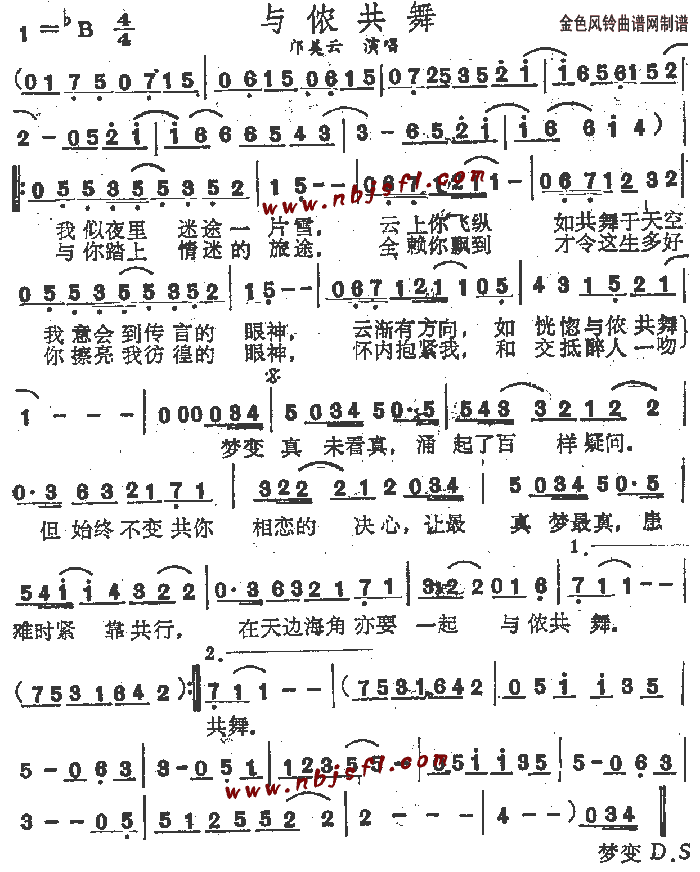 与侬共舞
金色风铃曲谱网制谱
1=♭B 4/4
邝美云 演唱
(01750715 | 06150615 | 0725352i i | i6561152
2-052i i | i6665543 | 3-652i i | i6 6i4)
‖: 055355352 | 15-- | 067121 1-- | 067121232
www.nbjsfl.com
我似夜里 迷途一片雪, 云上你飞纵 如共舞于天空
与你踏上 情迷的旅途, 全赖你飘到 才令这生多好
055355352 | 15-- | 067121 1105 | 431521 2
我意会到传言的 眼神, 云渐有方向, 如 恍惚与侬共舞
你擦亮我彷徨的 眼神, 怀内抱紧我, 和 交抵醉人一吻
1--- | 000034 | 5034 50·5 | 543 3212 2
梦变 真 未看真, 涌 起了百 样疑问.
0·3 63 21 71 | 322 212 034 | 5034 50·5
但 始终不变共你 相恋的 决心, 让最 真 梦最真, 患
54i i4322 | 0·3 6321 71 | 322 2016 | 711--
1.
难时紧 靠共行, 在天边海角亦要 一起 与侬共 舞.
2.
(7531642):‖ 711-- | (7531642 | 05i i35
共舞.
5-063 | 3-051 | 12355- | 05i i35 | 5-063
www.nbjsfl.com
3--05 | 5125522 | 2-- | 2--)034 ‖
梦变 D.S